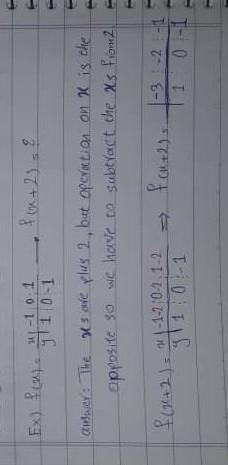 Ex) f(x) = x | -1 | 0 | 1 → f(x+2) = ?
y | 1 | 0 | -1
answer: The xs are plus 2, but operation on x is the
opposite so we have to subtract the xs from 2
f(x+2) = x | -1-2 | 0-2 | 1-2 ⇒ f(x+2) = | -3 | -2 | -1
y | 1 | 0 | -1 | 1 | 0 | -1